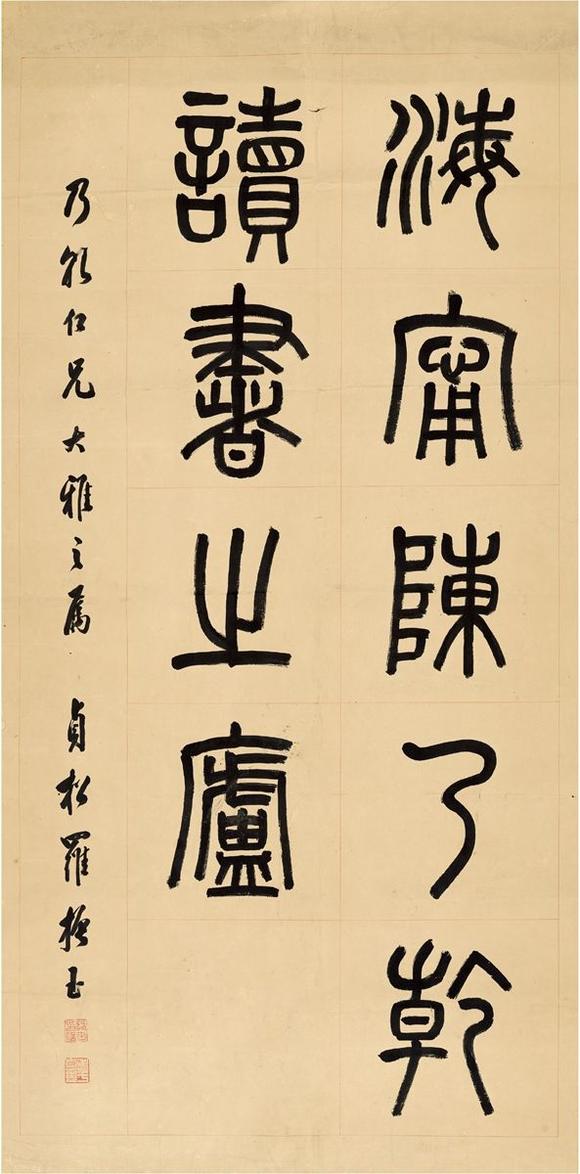 海甯陳乃乾
讀書之廬
乃乾仁兄大雅之屬 貞松羅振玉